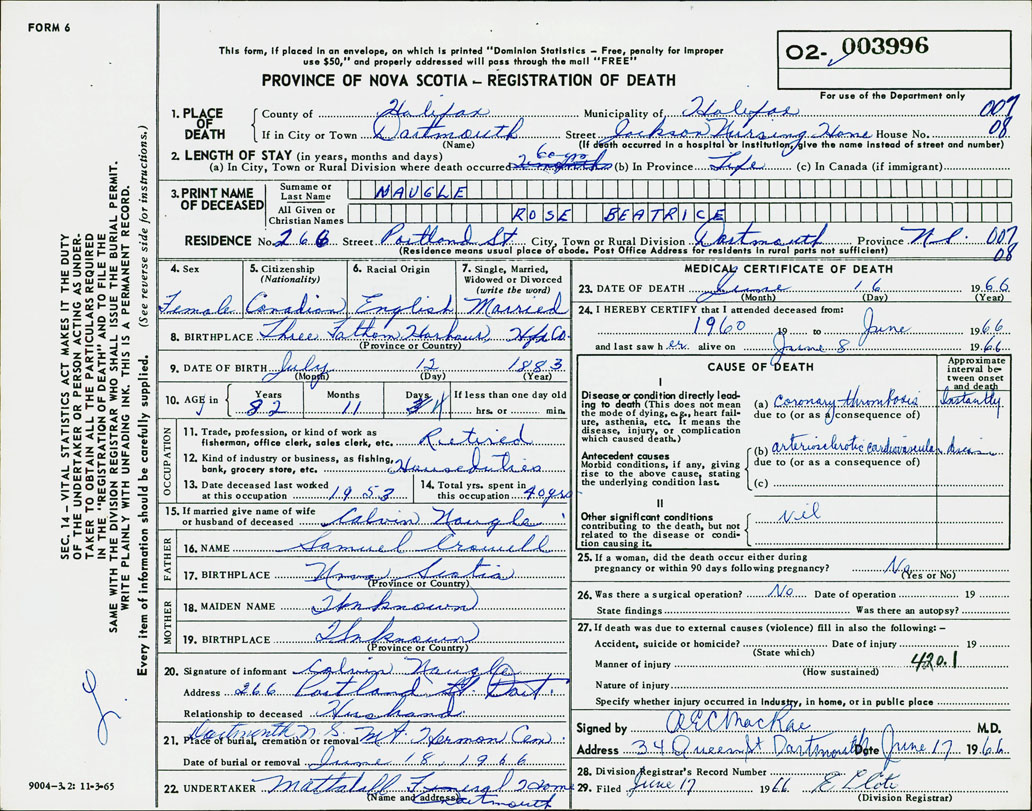 FORM 6
This form, if placed in an envelope, on which is printed "Dominion Statistics – Free, penalty for improper
use $50," and properly addressed will pass through the mail "FREE"
PROVINCE OF NOVA SCOTIA – REGISTRATION OF DEATH
02- 003996
For use of the Department only
1. PLACE OF DEATH
County of Halifax Municipality of Halifax 007
If in City or Town Dartmouth Street Jackson Nursing Home House No. 08
(Name) (If death occurred in a hospital or institution, give the name instead of street and number)
2. LENGTH OF STAY (in years, months and days)
(a) In City, Town or Rural Division where death occurred 60 yrs (b) In Province Life (c) In Canada (if immigrant)
3. PRINT NAME OF DECEASED
Surname or Last Name NAUGLE
All Given or Christian Names ROSE BEATRICE
RESIDENCE No. 266 Street Portland St City, Town or Rural Division Dartmouth Province N.S. 007
(Residence means usual place of abode. Post Office Address for residents in rural parts not sufficient) 08
4. Sex 5. Citizenship (Nationality) 6. Racial Origin 7. Single, Married, Widowed or Divorced (write the word)
Female Canadian English Married
8. BIRTHPLACE Three Fathom Harbour Hfx Co.
(Province or Country)
9. DATE OF BIRTH July 12 1883
(Month) (Day) (Year)
10. AGE in Years Months Days If less than one day old
82 11 4 hrs. or min.
OCCUPATION
11. Trade, profession, or kind of work as
fisherman, office clerk, sales clerk, etc. Retired
12. Kind of industry or business, as fishing,
bank, grocery store, etc. Houseduties
13. Date deceased last worked
at this occupation 1953
14. Total yrs. spent in
this occupation 40 yrs
15. If married give name of wife
or husband of deceased Calvin Naugle
FATHER
16. NAME Samuel Crowell
17. BIRTHPLACE Nova Scotia
(Province or Country)
MOTHER
18. MAIDEN NAME Unknown
19. BIRTHPLACE Unknown
(Province or Country)
20. Signature of informant Calvin Naugle
Address 266 Portland St. Dart.
Relationship to deceased Husband
Dartmouth N.S.
21. Place of burial, cremation or removal Mt. Hermon Cem.
Date of burial or removal June 18, 1966
22. UNDERTAKER Mattatall Funeral Home
(Name and address) Dartmouth
MEDICAL CERTIFICATE OF DEATH
23. DATE OF DEATH June 16 1966
(Month) (Day) (Year)
24. I HEREBY CERTIFY that I attended deceased from:
1960 19 to June 1966
and last saw her alive on June 8 1966
CAUSE OF DEATH
Approximate interval between onset and death
I
Disease or condition directly leading to death (This does not mean the mode of dying, e.g., heart failure, asthenia, etc. It means the disease, injury, or complication which caused death.)
(a) Coronary thrombosis Instantly
due to (or as a consequence of)
Antecedent causes
Morbid conditions, if any, giving rise to the above cause, stating the underlying condition last.
(b) arteriosclerotic cardiovascular disease
due to (or as a consequence of)
(c)
II
Other significant conditions
contributing to the death, but not related to the disease or condition causing it. Nil
25. If a woman, did the death occur either during
pregnancy or within 90 days following pregnancy? No
(Yes or No)
26. Was there a surgical operation? No Date of operation 19
State findings Was there an autopsy?
27. If death was due to external causes (violence) fill in also the following: –
Accident, suicide or homicide? Date of injury 19
(State which)
Manner of injury 420.1
(How sustained)
Nature of injury
Specify whether injury occurred in industry, in home, or in public place
Signed by A E C MacRae M.D.
Address 34 Queen St Dartmouth Date June 17 1966
28. Division Registrar's Record Number
29. Filed June 17 1966
(Division Registrar)
SEC. 14 – VITAL STATISTICS ACT MAKES IT THE DUTY
OF THE UNDERTAKER OR PERSON ACTING AS UNDER-
TAKER TO OBTAIN ALL THE PARTICULARS REQUIRED
IN THE "REGISTRATION OF DEATH" AND TO FILE THE
SAME WITH THE DIVISION REGISTRAR WHO SHALL ISSUE THE BURIAL PERMIT.
WRITE PLAINLY WITH UNFADING INK. THIS IS A PERMANENT RECORD.
Every item of information should be carefully supplied. (See reverse side for instructions.)
9004-3.2: 11-3-65